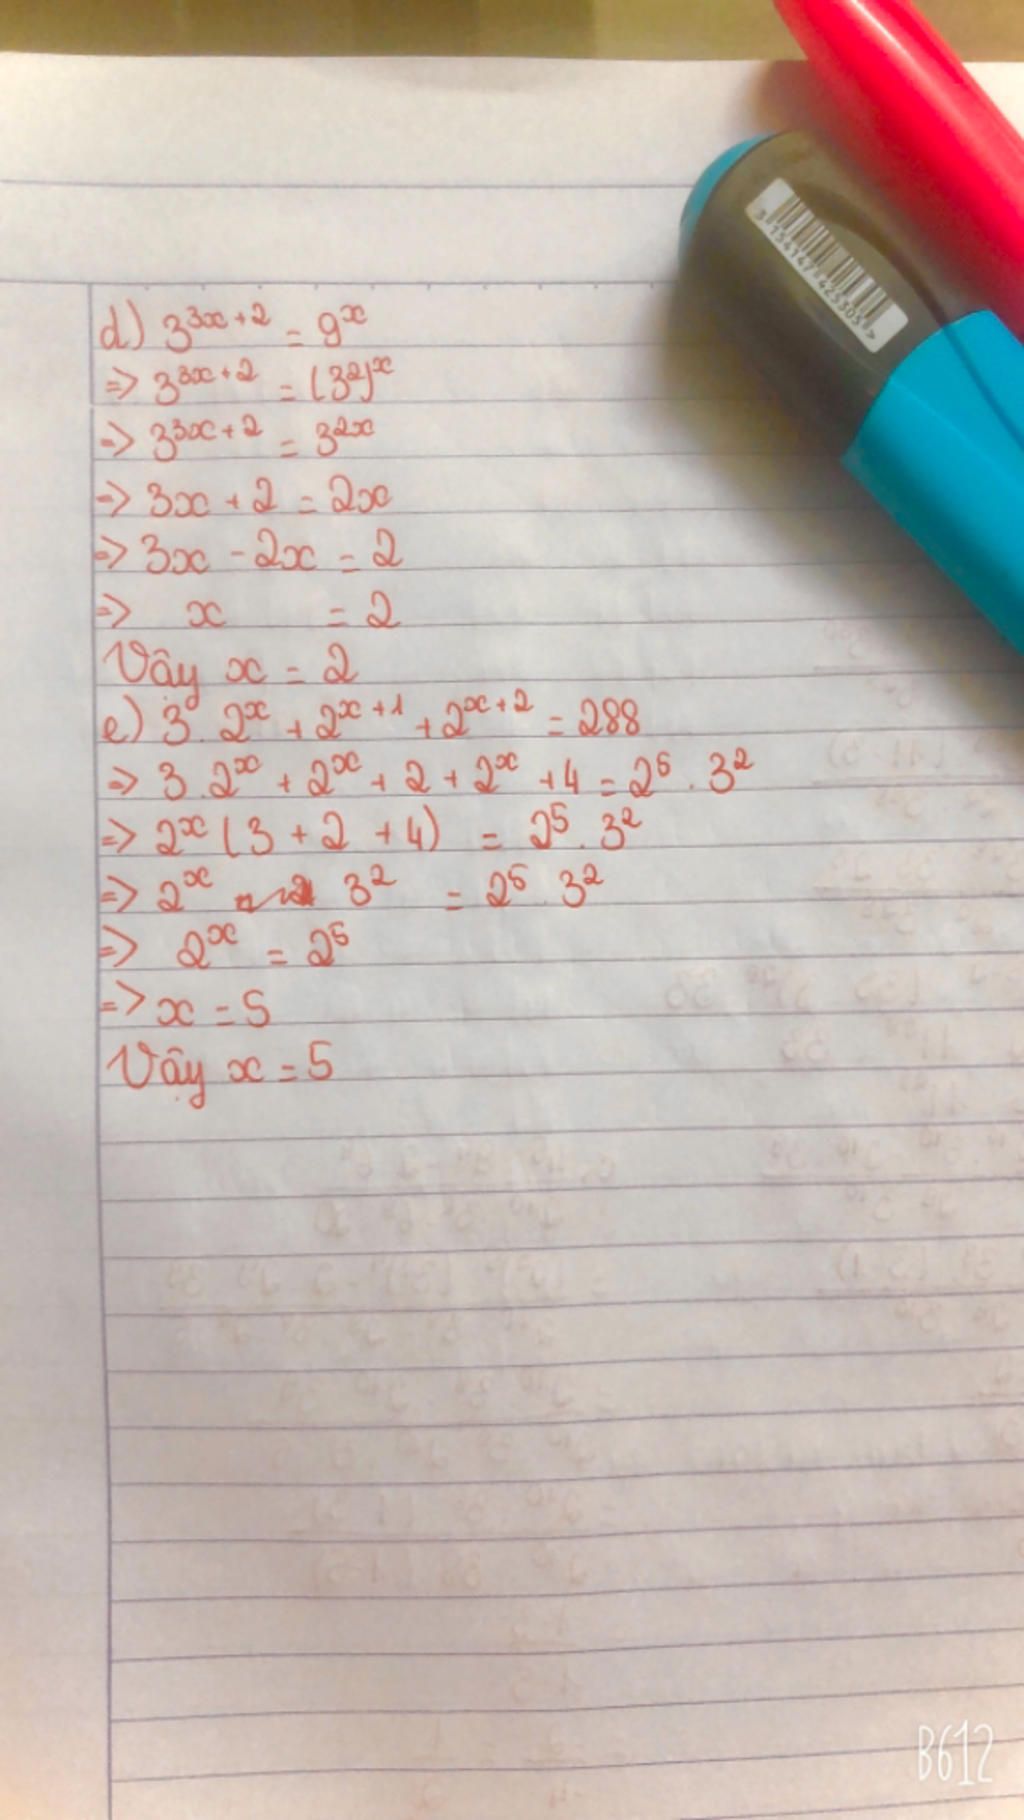 d) 3^{3x+2} = 9^x
=> 3^{3x+2} = (3^2)^x
=> 3^{3x+2} = 3^{2x}
=> 3x + 2 = 2x
=> 3x - 2x = 2
=> x = 2
Vậy x = 2
e) 3. 2^x + 2^{x+1} + 2^{x+2} = 288
=> 3. 2^x + 2^x + 2 + 2^x + 4 = 2^5 . 3^2
=> 2^x (3 + 2 + 4) = 2^5 . 3^2
=> 2^x 3^2 = 2^5 . 3^2
=> 2^x = 2^5
=> x = 5
Vậy x = 5
B612